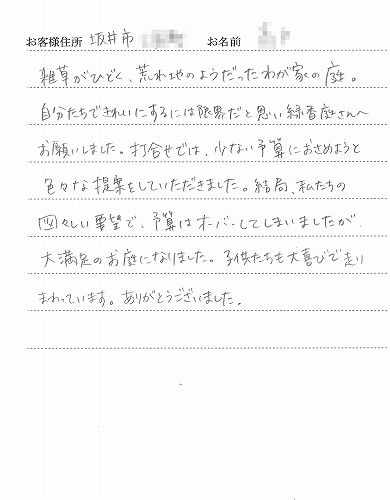 お客様住所 坂井市 お名前
雑草がひどく、荒れ地のようだったわが家の庭。
自分たちできれいにするには限界だと思い緑香庭さんへ
お願いしました。打合せでは、少ない予算におさめようと
色々な提案をしていただきました。結局、私たちの
図々しい要望で、予算はオーバーしてしまいましたが
大満足のお庭になりました。子供たちも大喜びで走り
まわっています。ありがとうございました。